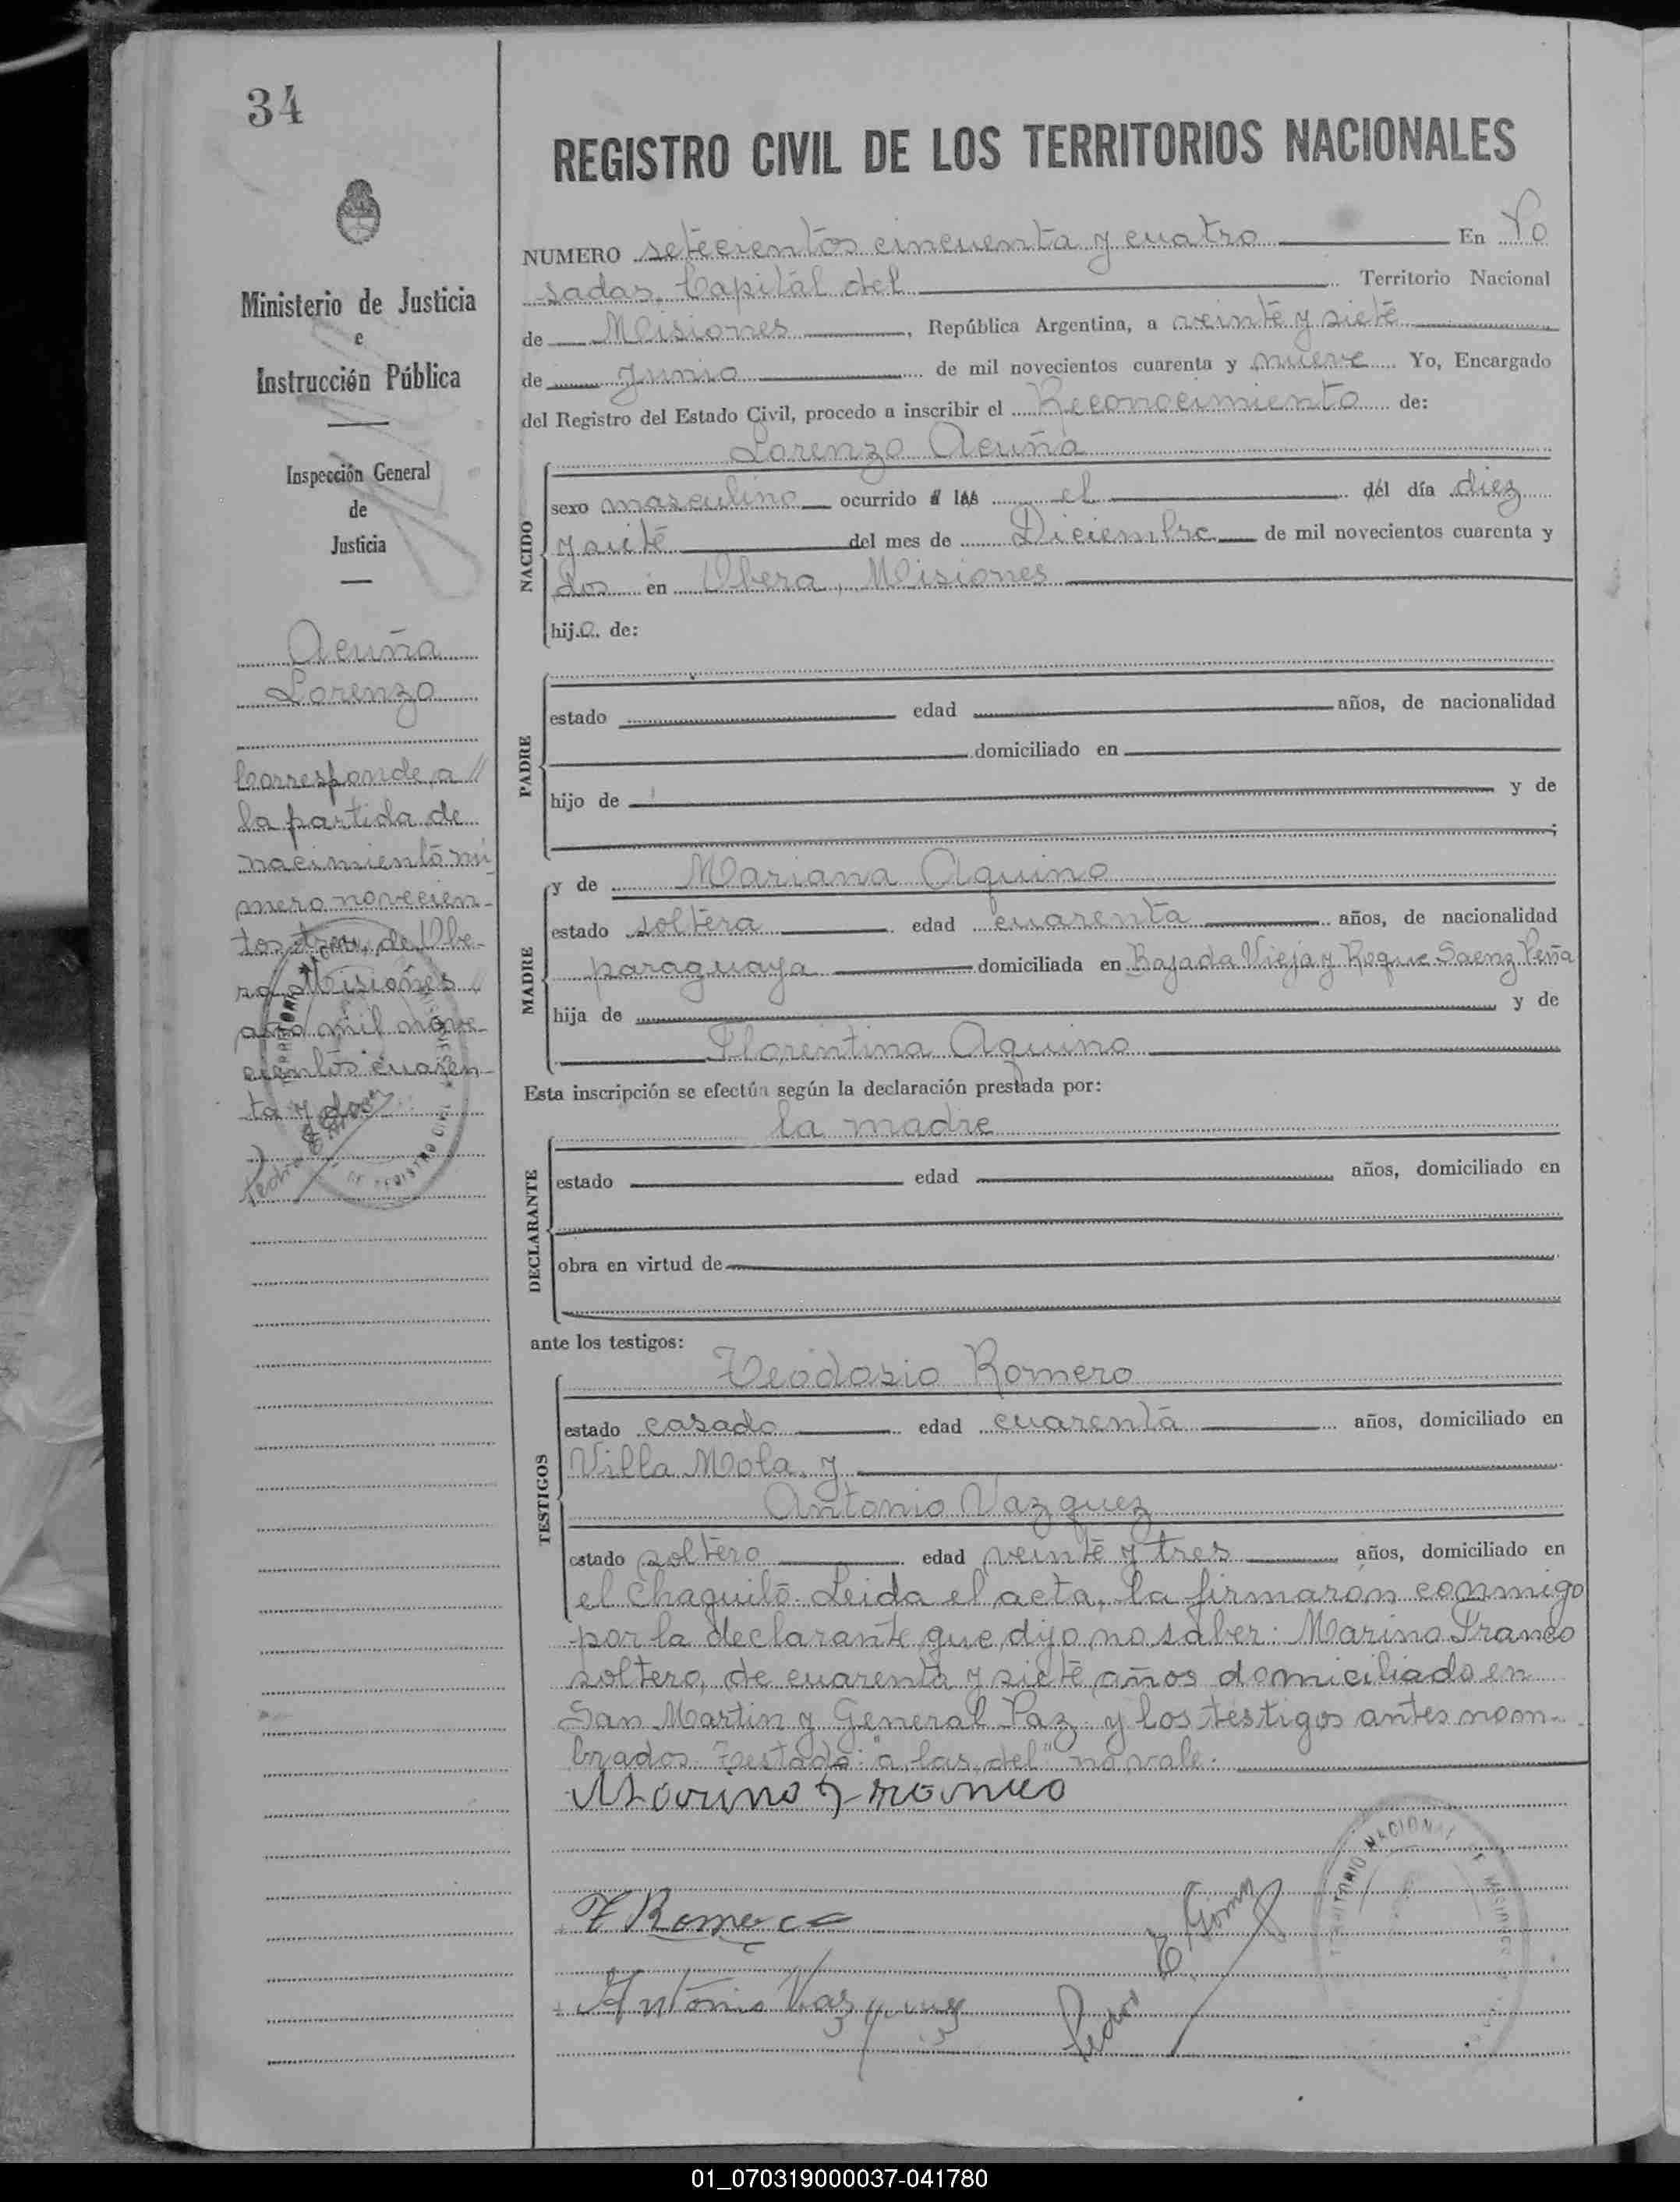 34
REGISTRO CIVIL DE LOS TERRITORIOS NACIONALES
NUMERO setecientos cincuenta y cuatro En Po
sadas, Capital del Territorio Nacional
de Misiones, República Argentina, a veinte y siete
de Junio de mil novecientos cuarenta y nueve Yo, Encargado
del Registro del Estado Civil, procedo a inscribir el Reconocimiento de:
Lorenzo Acuña
NACIDO
sexo masculino ocurrido a las el del día diez
y siete del mes de Diciembre de mil novecientos cuarenta y
dos en Obera, Misiones
hijo de:
PADRE
estado edad años, de nacionalidad
domiciliado en
hijo de y de
;
MADRE
y de Mariana Aquino
estado soltera edad cuarenta años, de nacionalidad
paraguaya domiciliada en Bajada Vieja y Roque Saenz Peña
hija de y de
Florentina Aquino
Esta inscripción se efectúa según la declaración prestada por:
la madre
DECLARANTE
estado edad años, domiciliado en
obra en virtud de
ante los testigos:
TESTIGOS
Teodosio Romero
estado casado edad cuarenta años, domiciliado en
Villa Mola, y
Antonio Vazquez
estado soltero edad veinte y tres años, domiciliado en
el Chaquito. Leida el acta, la firmaron conmigo
por la declarante que dijo no saber: Marino Franco
soltero, de cuarenta y siete años domiciliado en
San Martin y General Paz y los testigos antes nom-
brados. Testado: "a las, del" no vale.
Marino Franco
T Romero
Antonio Vazquez
Pedro E Gomez
TERRITORIO NACIONAL DE MISIONES
Ministerio de Justicia
e
Instrucción Pública
Inspección General
de
Justicia
Acuña
Lorenzo
Corresponde a //
la partida de
nacimiento nú
mero novecien-
tos tres, de Obe-
ra Misiones
año mil nove-
cientos cuaren-
ta y dos
Pedro E Gomez
DE REGISTRO CIVIL
01_070319000037-041780